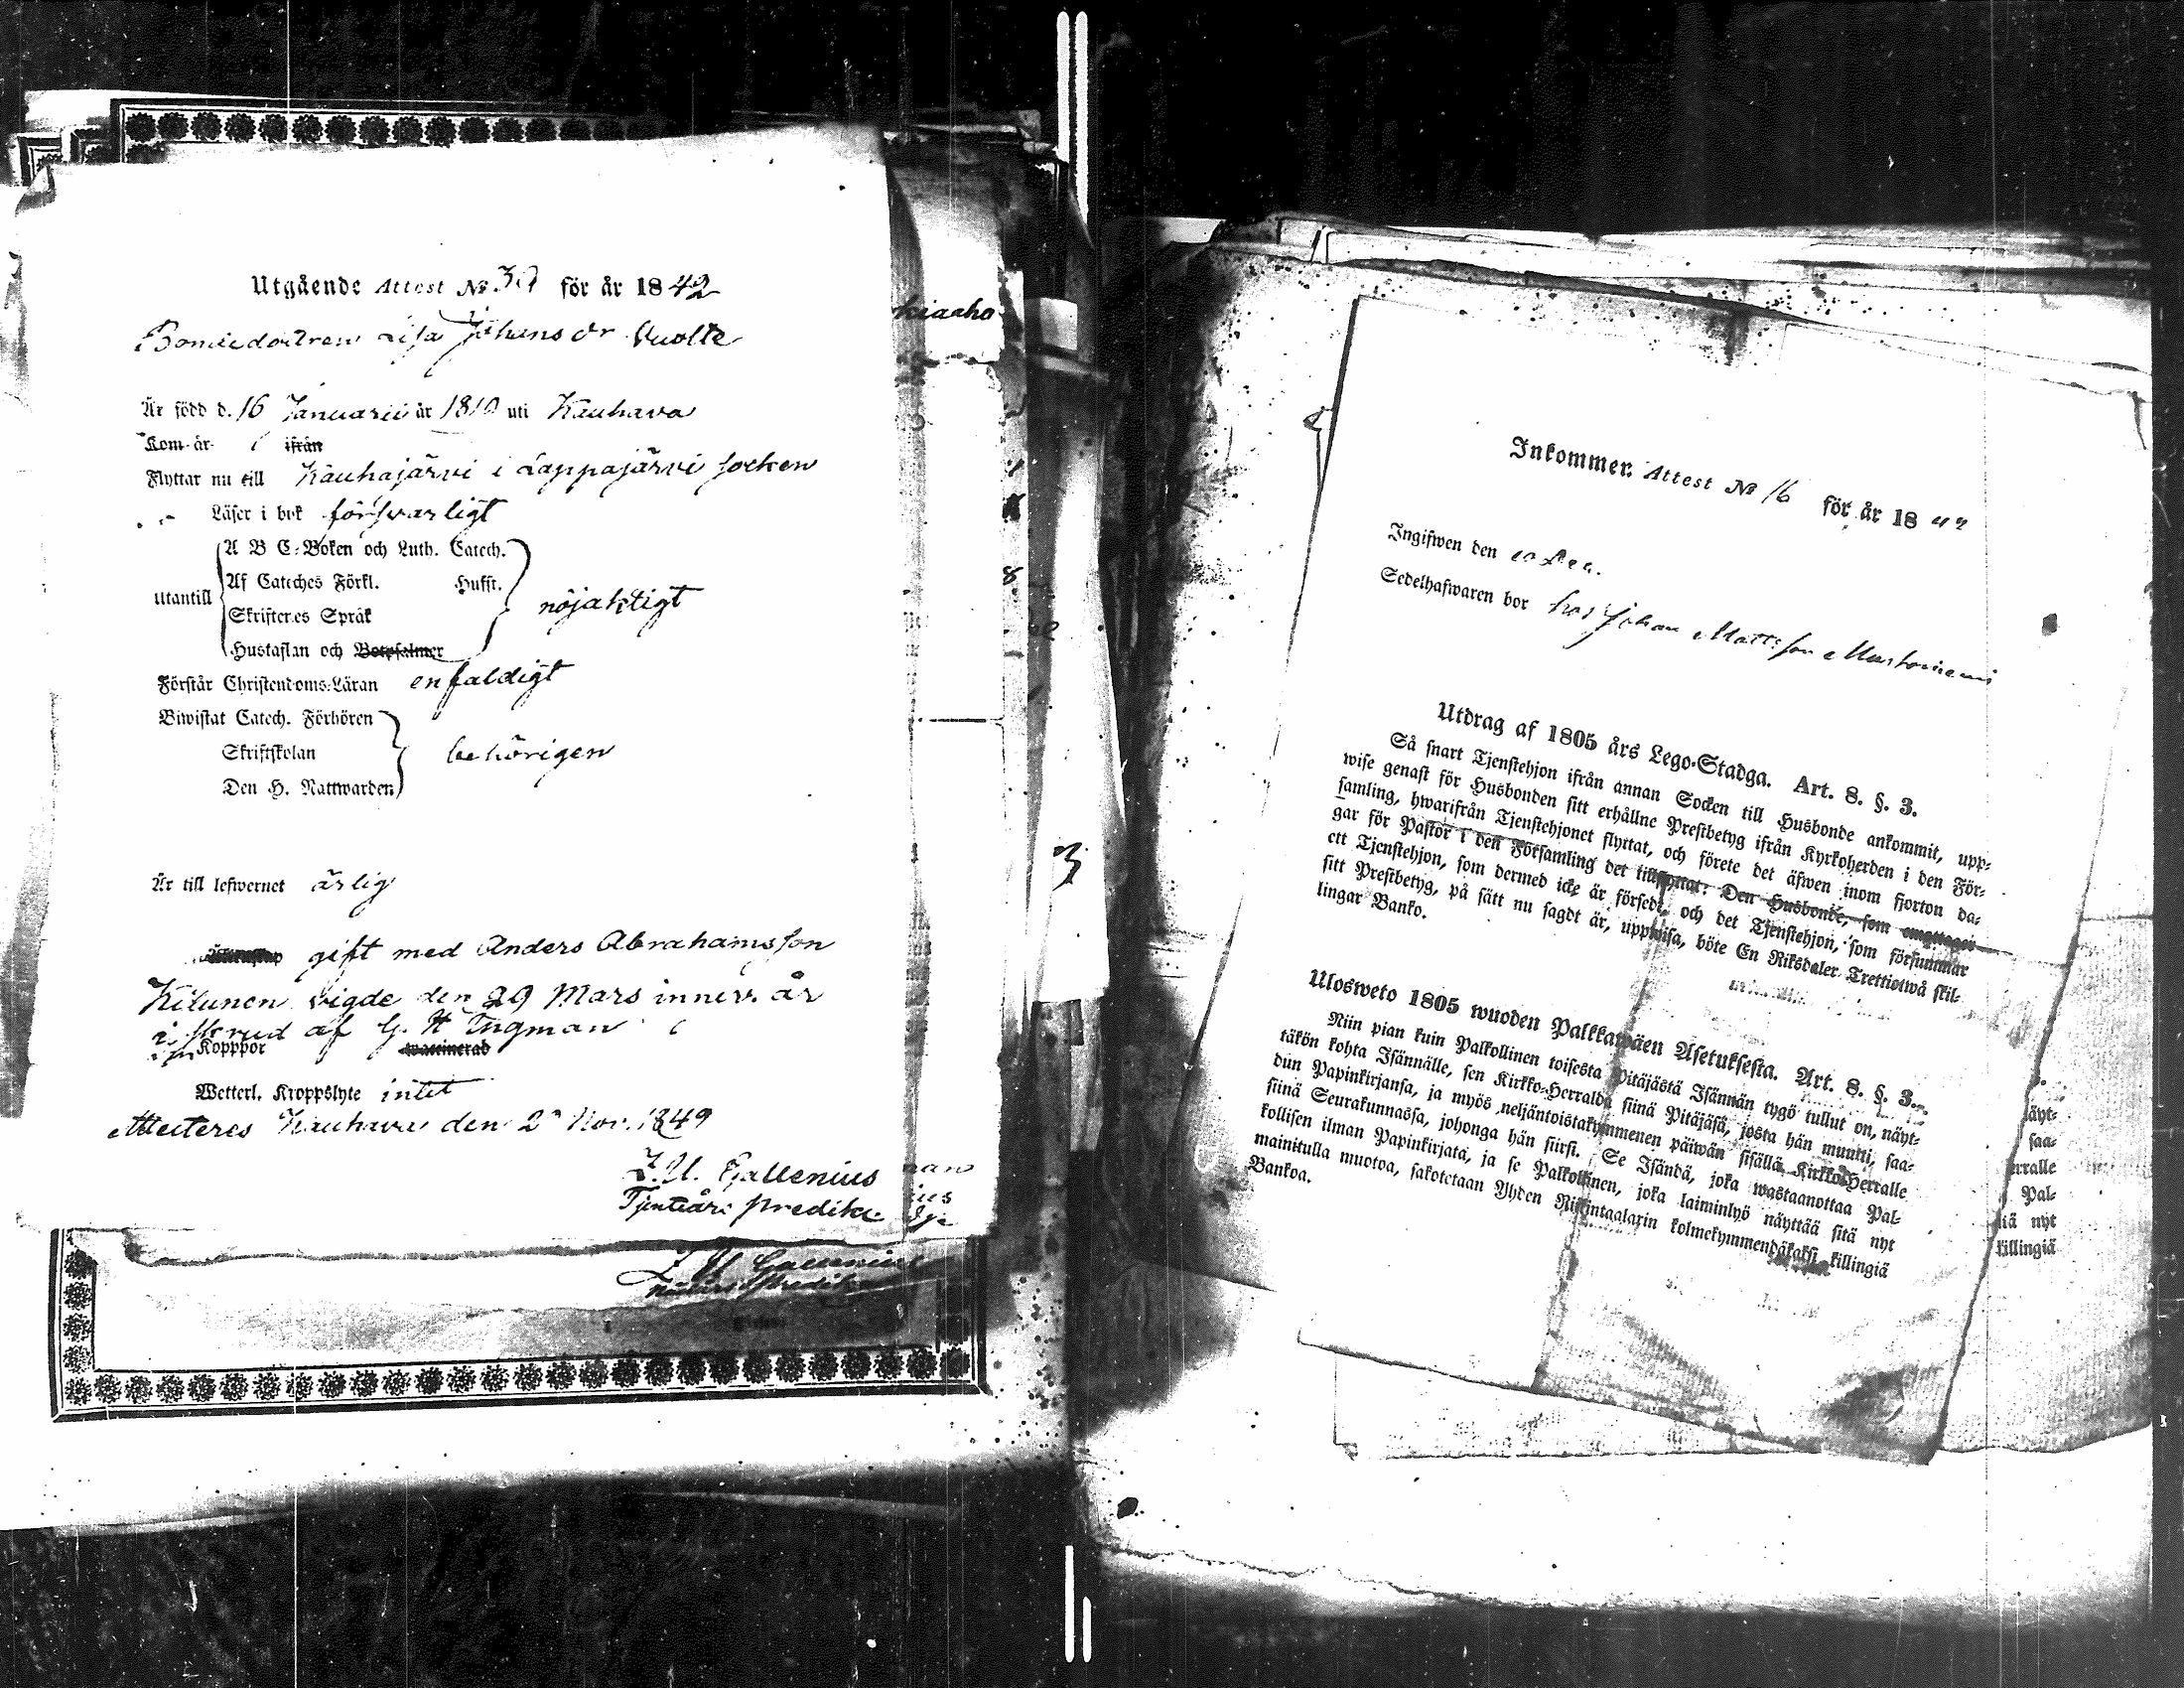 Utgående Attest № 39 för år 1842
Bondedottren Lisa Johansdr Vuolle
Är född d. 16 Januarii år 1810 uti Kauhava
Kom år ifrån
Flyttar nu till Kauhajärvi i Lappajärvi socken
Läser i bok försvarligt
A B C-Boken och Luth. Catech.
Af Cateches Förkl. Hufft.
Utantill
Skriftenes Språk
nöjaktigt
Hustaflan och Botpsalmer
Förstår Christendoms-Läran enfaldigt
Biwistat Catech. Förhören
Skriftskolan
behörigen
Den H. Nattwarden
Är till lefwernet ärlig
gift med Anders Abrahamsson
Kilunen vigde den 29 Mars innev. år
af G. H Ingman
Kopppor waccinerad
Wetterl. Kroppslyte intet
Attesteres Kauhava den Nov. 1842
Z. U. Gallenius
predik
kiaaho
8
3
Inkommen Attest № 16 för år 1842
Ingifwen den
Sedelhafwaren bor hos Johan Mattsson
Utdrag af 1805 års Lego-Stadga. Art. 8. §. 3.
Så snart Tjenstehjon ifrån annan Socken till Husbonde ankommit, upp-
wise genast för Husbonden sitt erhållne Prestbetyg ifrån Kyrkoherden i den För-
samling, hwarifrån Tjenstehjonet flyttat, och förete det äfwen inom fjorton da-
gar för Pastor i den Församling det tillflyttat: Den Husbonde, som emottager
ett Tjenstehjon, som dermed icke är försedt, och det Tjenstehjon, som försummar
sitt Prestbetyg, på sätt nu sagdt är, uppwisa, böte En Riksdaler Trettiotwå skil-
lingar Banko.
Ulosweto 1805 wuoden Palkkawäen Asetuksesta. Art. 8. §. 3.
Niin pian kuin Palkollinen toisesta Pitäjästä Isännän tygö tullut on, näyt-
täkön kohta Isännälle, sen Kirkko-Herralda siinä Pitäjäsä, josta hän muutti, saa-
dun Papinkirjansa, ja myös neljäntoistakymmenen päiwän sisällä Kirkko-Herralle
siinä Seurakunnassa, johonga hän siirsi. Se Isändä, joka wastaanottaa Pal-
kollisen ilman Papinkirjata, ja se Palkollinen, joka laiminlyö näyttää sitä nyt
mainitulla muotoa, sakotetaan Yhden Riikintaalarin kolmekymmendäkaksi killingiä
Bankoa.
näyt-
saa-
erralle
Pal-
iä nyt
killingiä